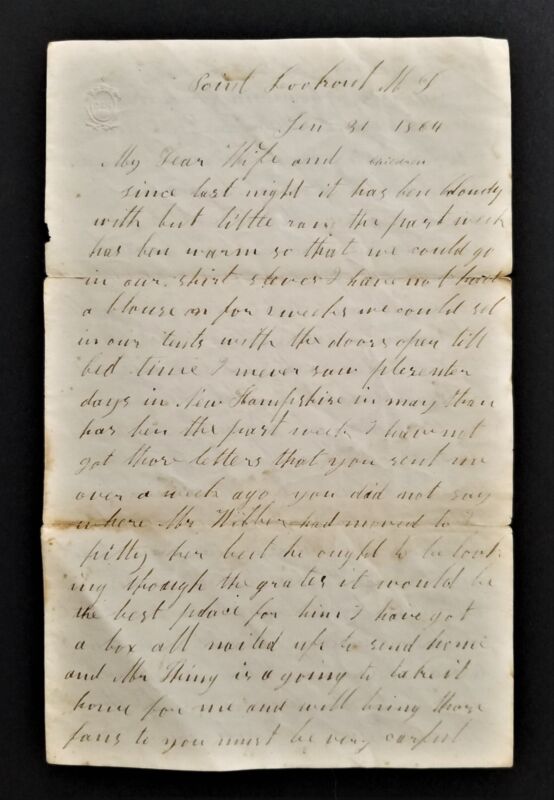 Point Lookout M d
Jan 31 1864
My Dear Wife and children
since last night it has ben cloudy
with but little rain the past week
has ben warm so that we could go
in our shirt sleves I have not had
a blouse on for 2 weeks we could set
in our tents with the doors open till
bed time I never saw plesenter
days in New Hampshire in may than
has ben the past week I have not
got those letters that you sent me
over a week ago you did not say
where Mr Webber had moved to I
pitty her but he ought to be look
ing through the grates it would be
the best place for him I have got
a box all nailed up to send home
and Mr Thing is a going to take it
home for me and will bring those
fans to you must be very carful